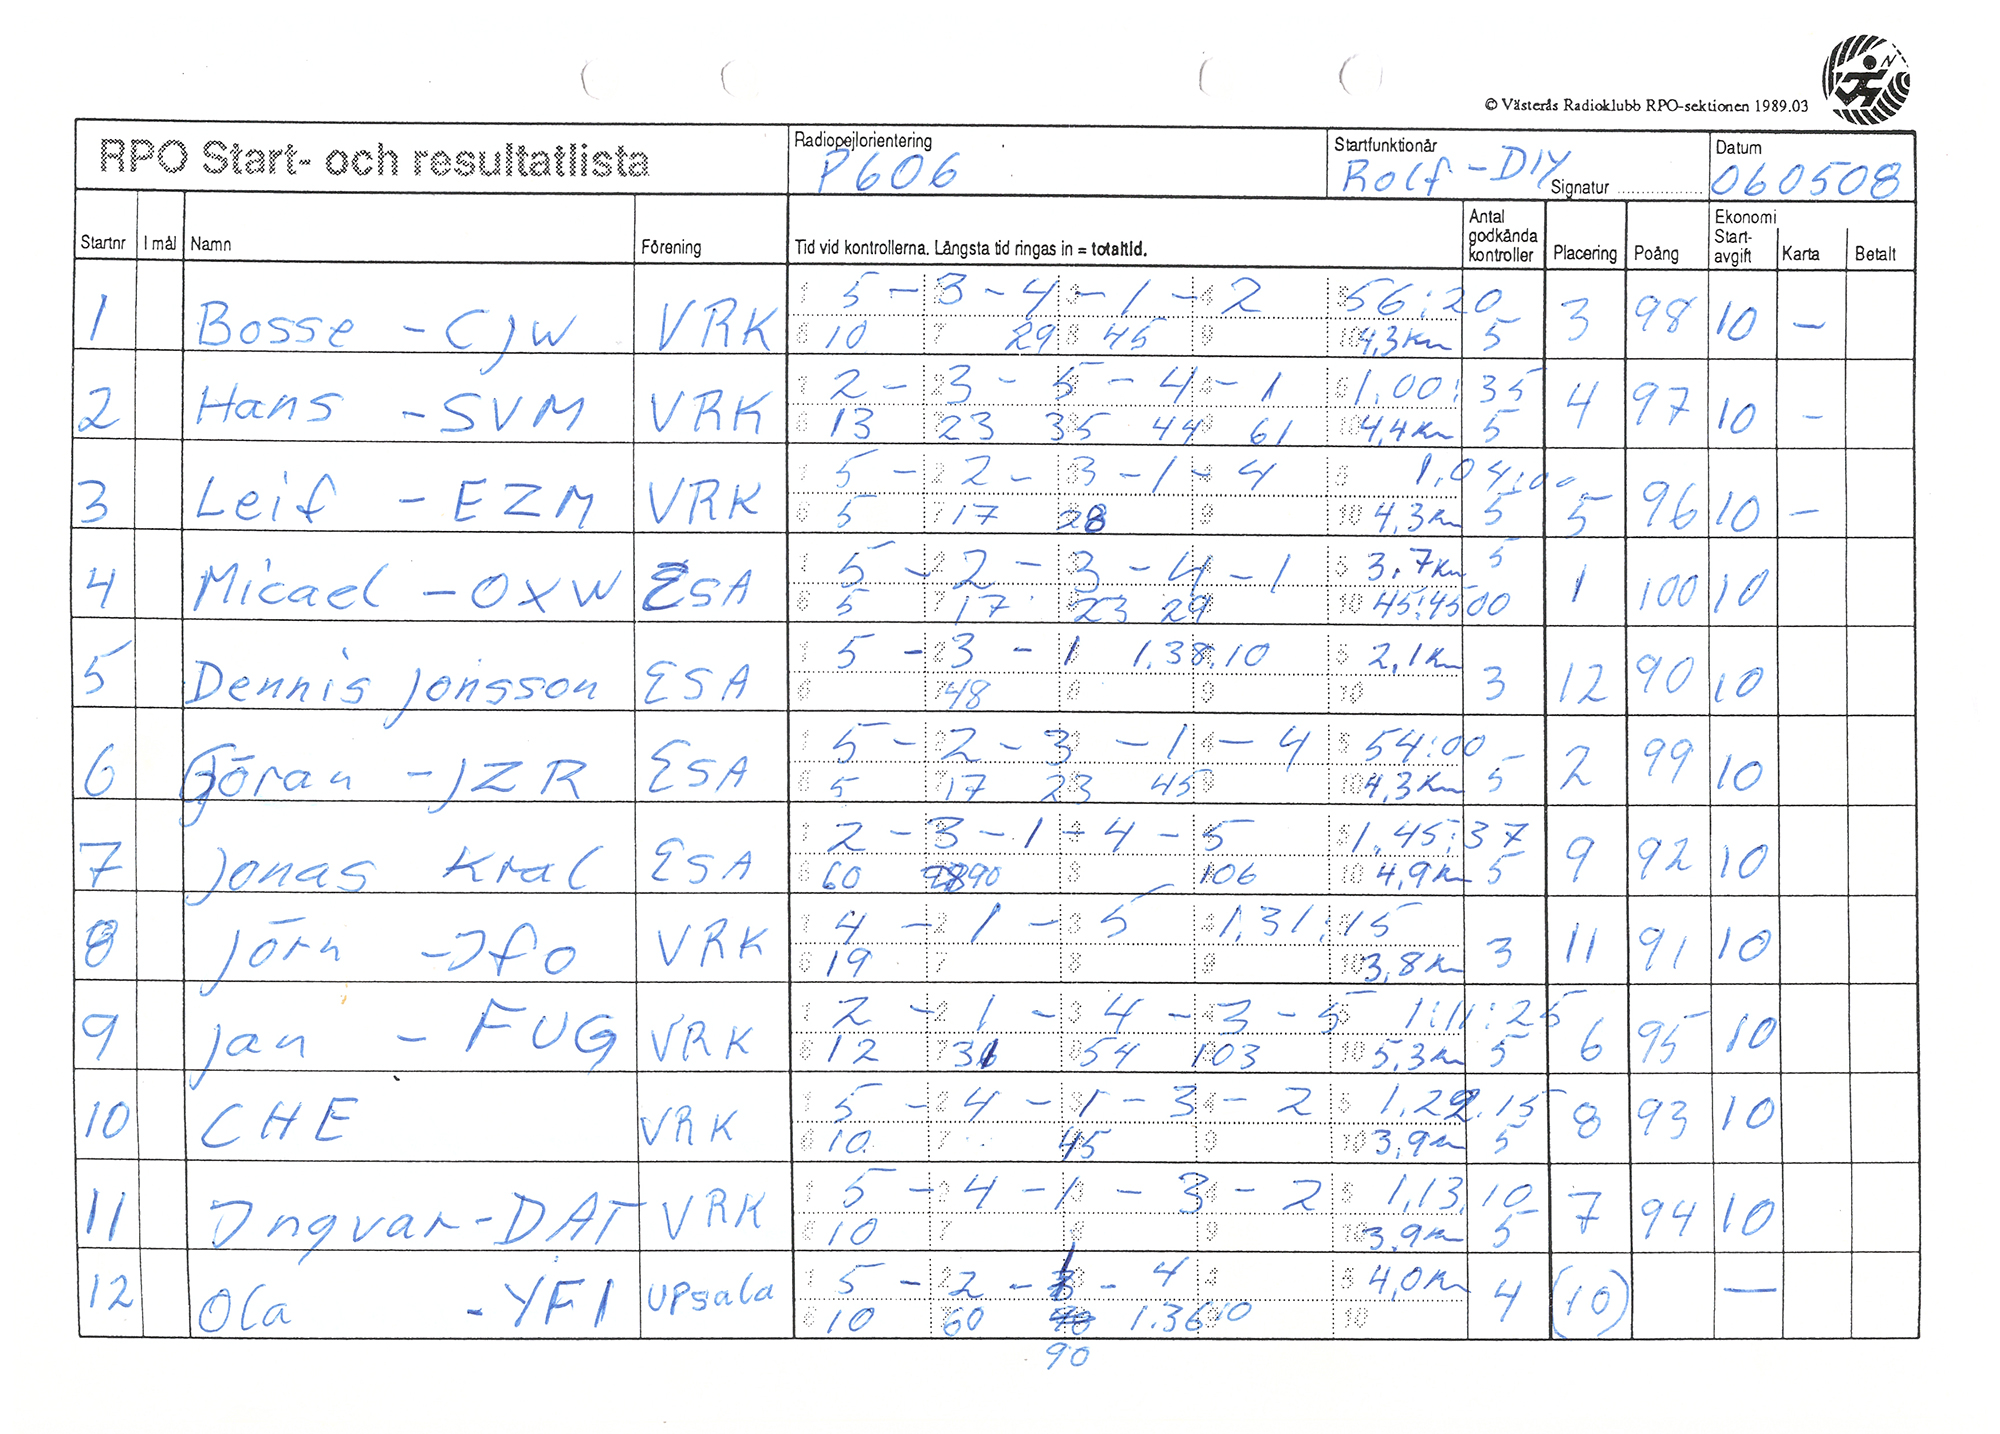 © Västerås Radioklubb RPO-sektionen 1989.03
N
RPO Start- och resultatlista
Radiopejlorientering
P606
Startfunktionär
Rolf -DIY
Signatur
Datum
060508
Startnr I mål Namn Förening Tid vid kontrollerna. Längsta tid ringas in = totaltid. Antal godkända kontroller Placering Poäng Ekonomi Start-avgift Karta Betalt
1 Bosse - CJW VRK 5 - 3 - 4 - 1 - 2 56:20 3 98 10 -
10 29 45 4,3Km 5
2 Hans - SVM VRK 2 - 3 - 5 - 4 - 1 1.00:35 4 97 10 -
13 23 35 44 61 4,4Km 5
3 Leif - EZM VRK 5 - 2 - 3 - 1 - 4 1.04:00 5 96 10 -
5 17 28 4,3Km 5
4 Micael - OXW ESA 5 - 2 - 3 - 4 - 1 3.7Km 5 1 100 10
5 17 23 29 45:45 00
5 Dennis Jonsson ESA 5 - 3 - 1 1.38.10 2,1Km 3 12 90 10
48
6 Göran - JZR ESA 5 - 2 - 3 - 1 - 4 54:00 2 99 10
5 17 23 45 4,3Km 5
7 Jonas Kral ESA 2 - 3 - 1 - 4 - 5 1.45:37 9 92 10
60 90 106 4,9Km 5
8 Jörn - JFO VRK 4 - 1 - 5 1.31:15 3 11 91 10
19 3,8Km
9 Jan - FUG VRK 2 - 1 - 4 - 3 - 5 1:11:25 6 95 10
12 31 54 103 5,3Km 5
10 CHE VRK 5 - 4 - 1 - 3 - 2 1.22.15 8 93 10
10 45 3,9Km 5
11 Ingvar - DAT VRK 5 - 4 - 1 - 3 - 2 1.13.10 7 94 10
10 3,9Km 5
12 Ola - YFI Upsala 5 - 2 - 1 - 4 4,0Km 4 (10) —
10 60 1.36 10
90